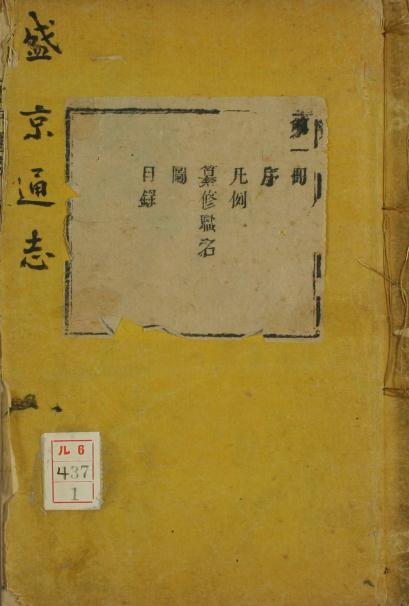 盛京通志
第一冊
序
凡例
纂修職名
圖
目錄
ル6
437
1